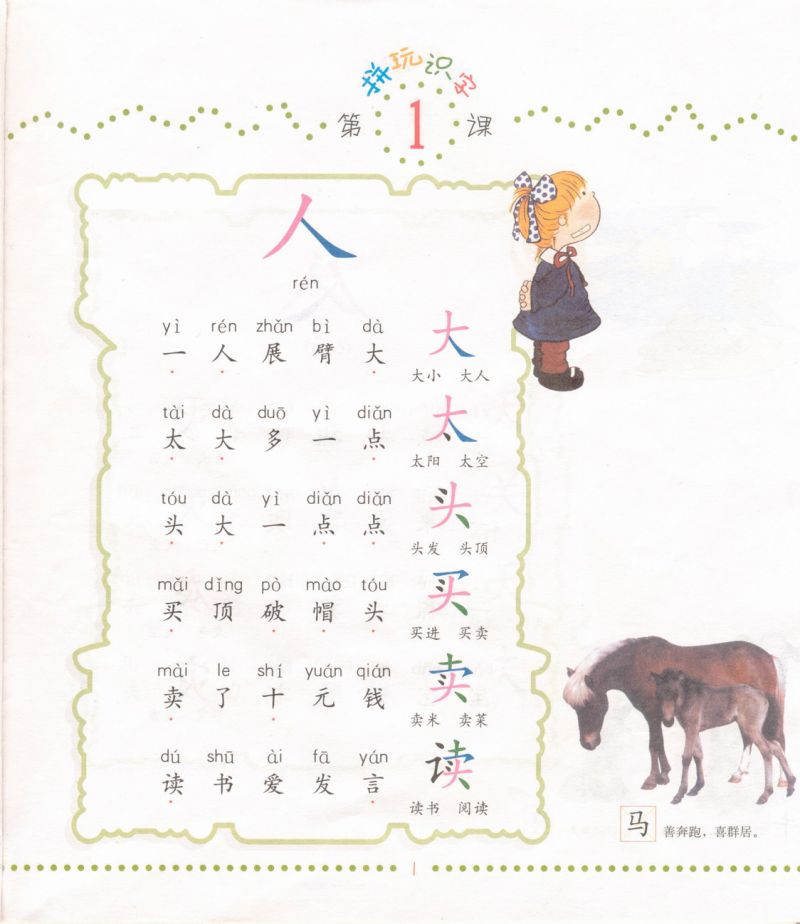 拼玩识字
第 1 课
人
rén
yì rén zhǎn bì dà
一 人 展 臂 大
大
大小 大人
tài dà duō yì diǎn
太 大 多 一 点
太
太阳 太空
tóu dà yì diǎn diǎn
头 大 一 点 点
头
头发 头顶
mǎi dǐng pò mào tóu
买 顶 破 帽 头
买
买进 买卖
mài le shí yuán qián
卖 了 十 元 钱
卖
卖米 卖菜
dú shū ài fā yán
读 书 爱 发 言
读
读书 阅读
马 善奔跑，喜群居。
1